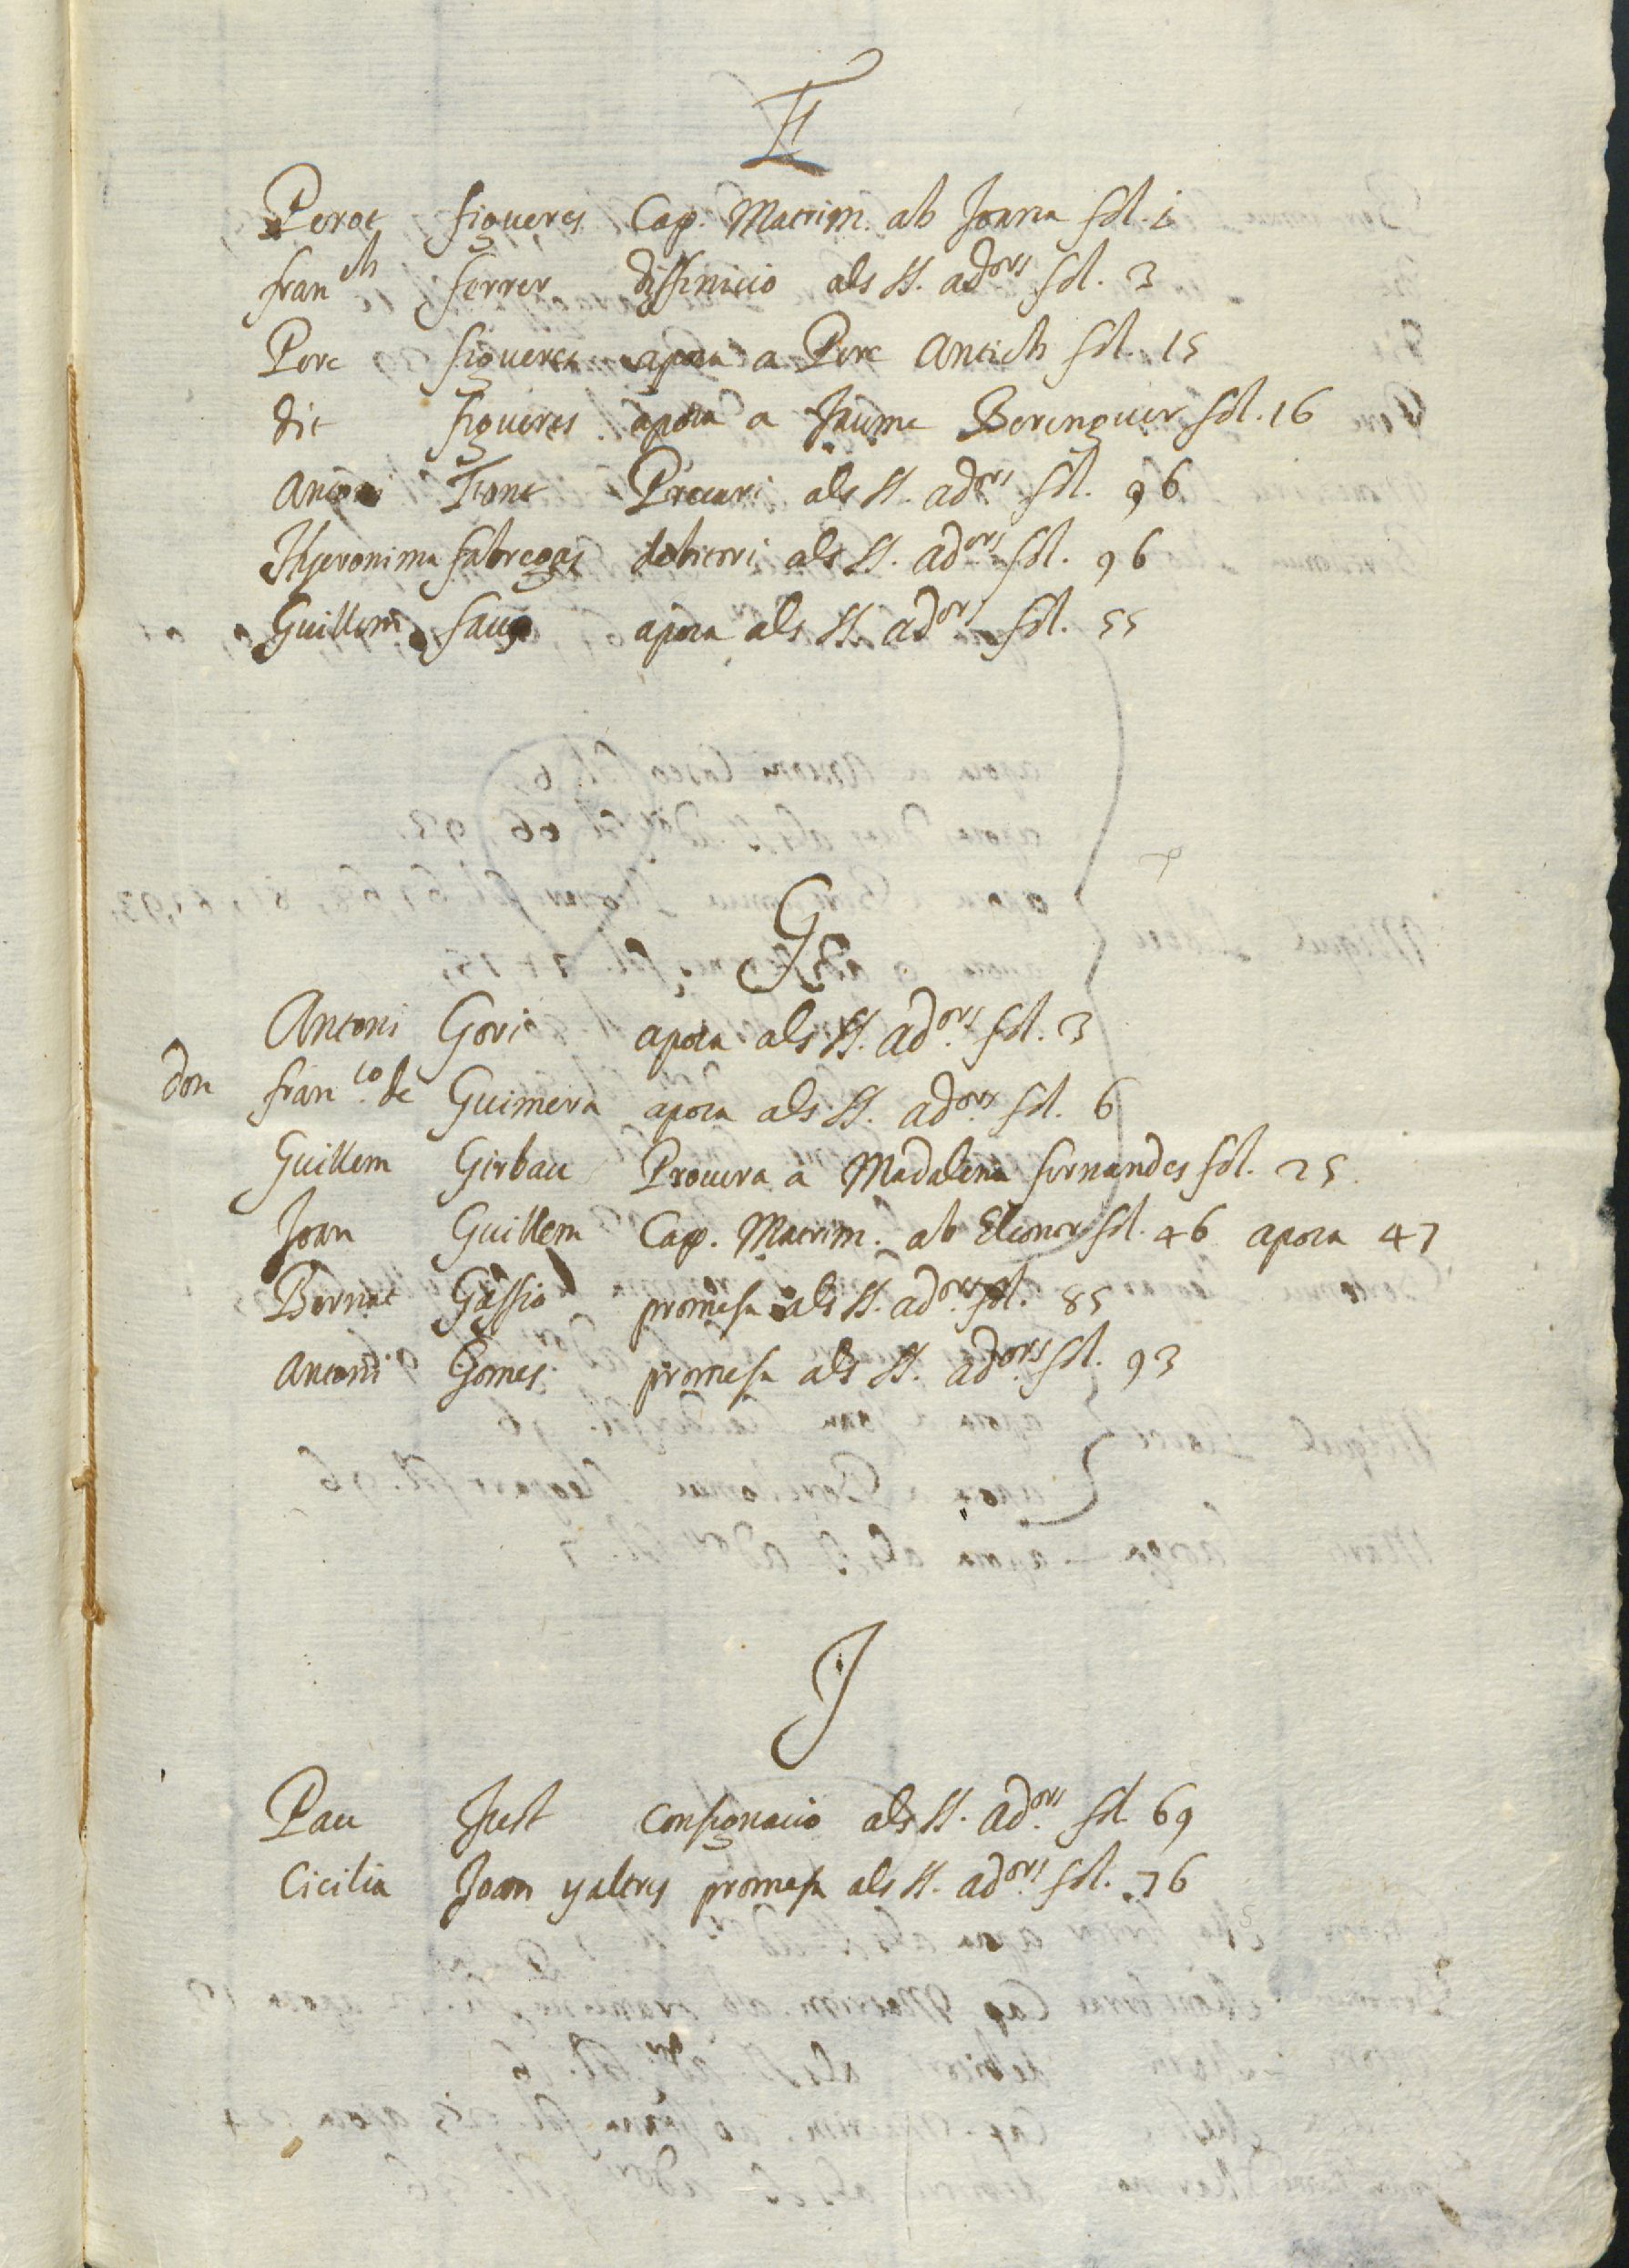 F
Perot figueres Cap. Matrim. ab Joana fol. 1
fran^ch ferrer diffinicio als SS. ad^ors fol. 3
Pere figueres apoca a Pere Antich fol. 15
dit figueres apoca a Jaume Berenguer fol. 16
Antoni Font Precari als SS. ad^ors fol. 96
Hyeronima fabregas debitori als SS. ad^ors fol. 96
Guillem apoca als SS. ad^ors fol. 55
G
Antoni Gori apoca als SS. ad^ors fol. 3
don fran^co de Guimera apoca als SS. ad^ors fol. 6
Guillem Girbau Procura a Madalena fernandes fol. 25
Joan Guillem Cap. Matrim. ab Elionor fol. 46 apoca 47
Bernat Gassio promesa als SS. ad^ors fol. 85
Antoni Gomes promesa als SS. ad^ors fol. 93
J
Pau Just Consignacio als SS. ad^ors fol. 69
Cicilia Joan y altres promesa als SS. ad^ors fol. 76